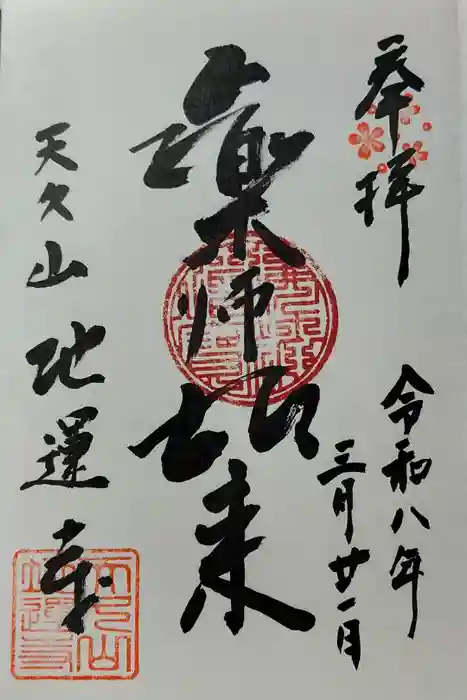 奉拝
令和八年
三月廿一日
藥師如来
天久山 地運寺